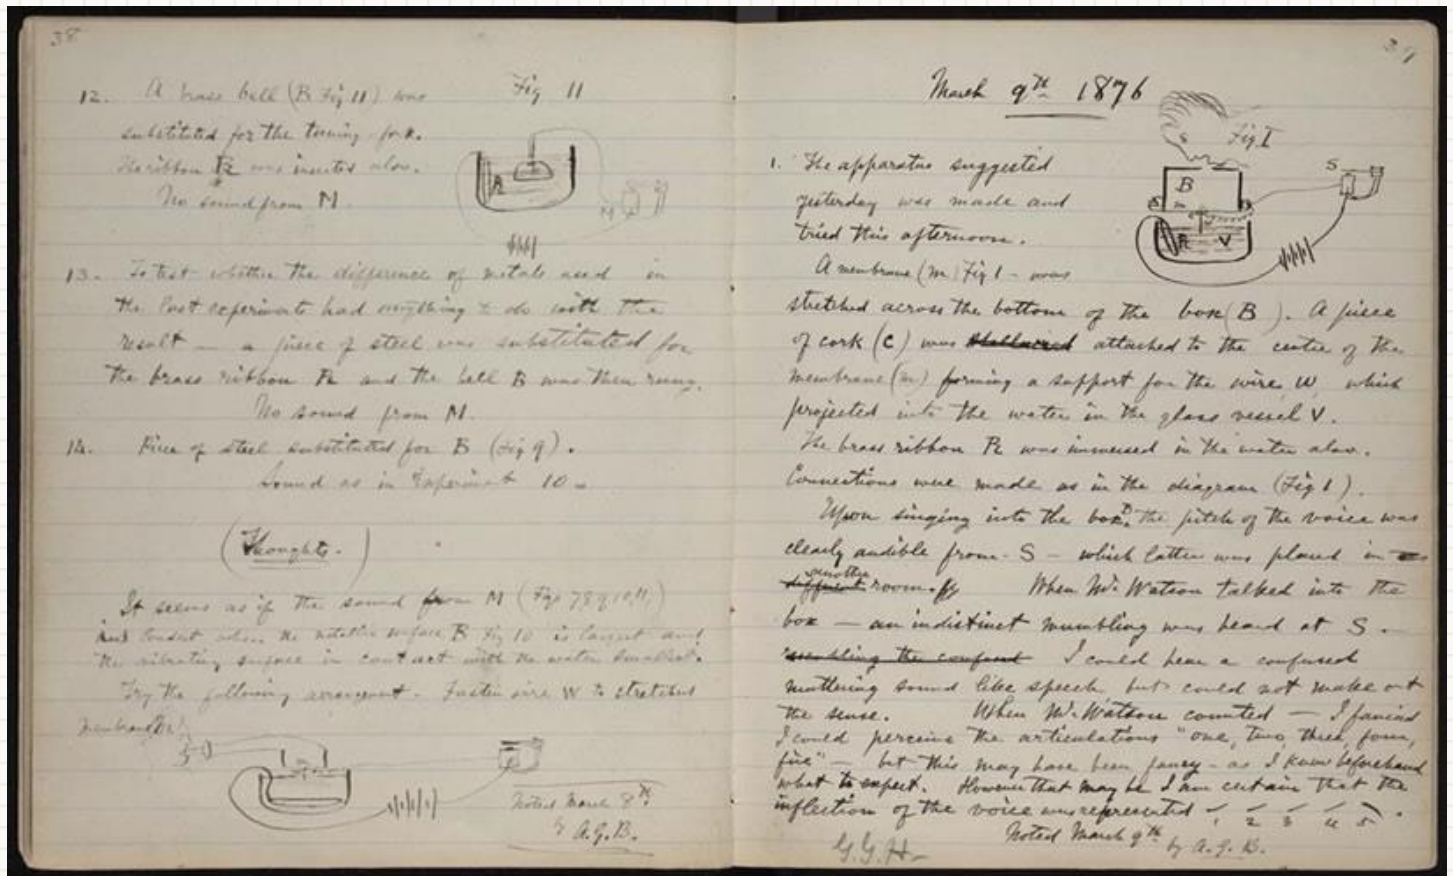 38
12. A brass bell (B Fig 11) was
substituted for the tuning-fork.
The ribbon R was inserted also.
No sound from M.
Fig 11
R
M
13. To test whether the difference of metals used in
the last experiments had anything to do with the
result — a piece of steel was substituted for
the brass ribbon R and the bell B was then rung.
No sound from M.
14. Piece of steel substituted for B (Fig 9).
Sound as in Experiment 10 —
(Thoughts.)
It seems as if the sound from M (Figs 7 8 9 10, 11,)
loudest when the metallic surface B Fig 10 is largest and
the vibrating surface in contact with the water smallest.
Try the following arrangement. Fasten wire W to stretched
membrane
Noted March 8th
by A.G.B.
39
March 9th 1876
Fig 1
S
B
m
R V
1. The apparatus suggested
yesterday was made and
tried this afternoon.
A membrane (m) Fig 1 — was
stretched across the bottom of the box (B). A piece
of cork (C) was attached to the centre of the
membrane (m) forming a support for the wire W, which
projected into the water in the glass vessel V.
The brass ribbon R was immersed in the water also.
Connections were made as in the diagram (Fig 1).
Upon singing into the box, the pitch of the voice was
clearly audible from S — which latter was placed in
different another room. When Mr. Watson talked into the
box — an indistinct mumbling was heard at S —
resembling the confused I could hear a confused
muttering sound like speech but could not make out
the sense. When Mr. Watson counted — I fancied
I could perceive the articulations "one, two, three, four,
five" — but this may have been fancy — as I knew beforehand
what to expect. However that may be I am certain that the
inflection of the voice was represented
1 2 3 4 5
Noted March 9th by A.G.B.
G.G.H.